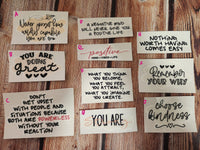 A
never forget how
wildly capable
you are
B
A NEGATIVE MIND
WILL NEVER GIVE YOU
A POSITIVE LIFE
YOU ARE
doing
great
positive
MIND • VIBES • LIFE
NOTHING
WORTH HAVING
COMES EASY
WHAT YOU THINK
YOU BECOME,
WHAT YOU FEEL
YOU ATTRACT,
WHAT YOU IMAGINE
YOU CREATE.
Remember
your why
C
DON'T
GET UPSET
WITH PEOPLE AND
SITUATIONS BECAUSE
BOTH ARE POWERLESS
WITHOUT YOUR
REACTION
YOU ARE
choose
kindness